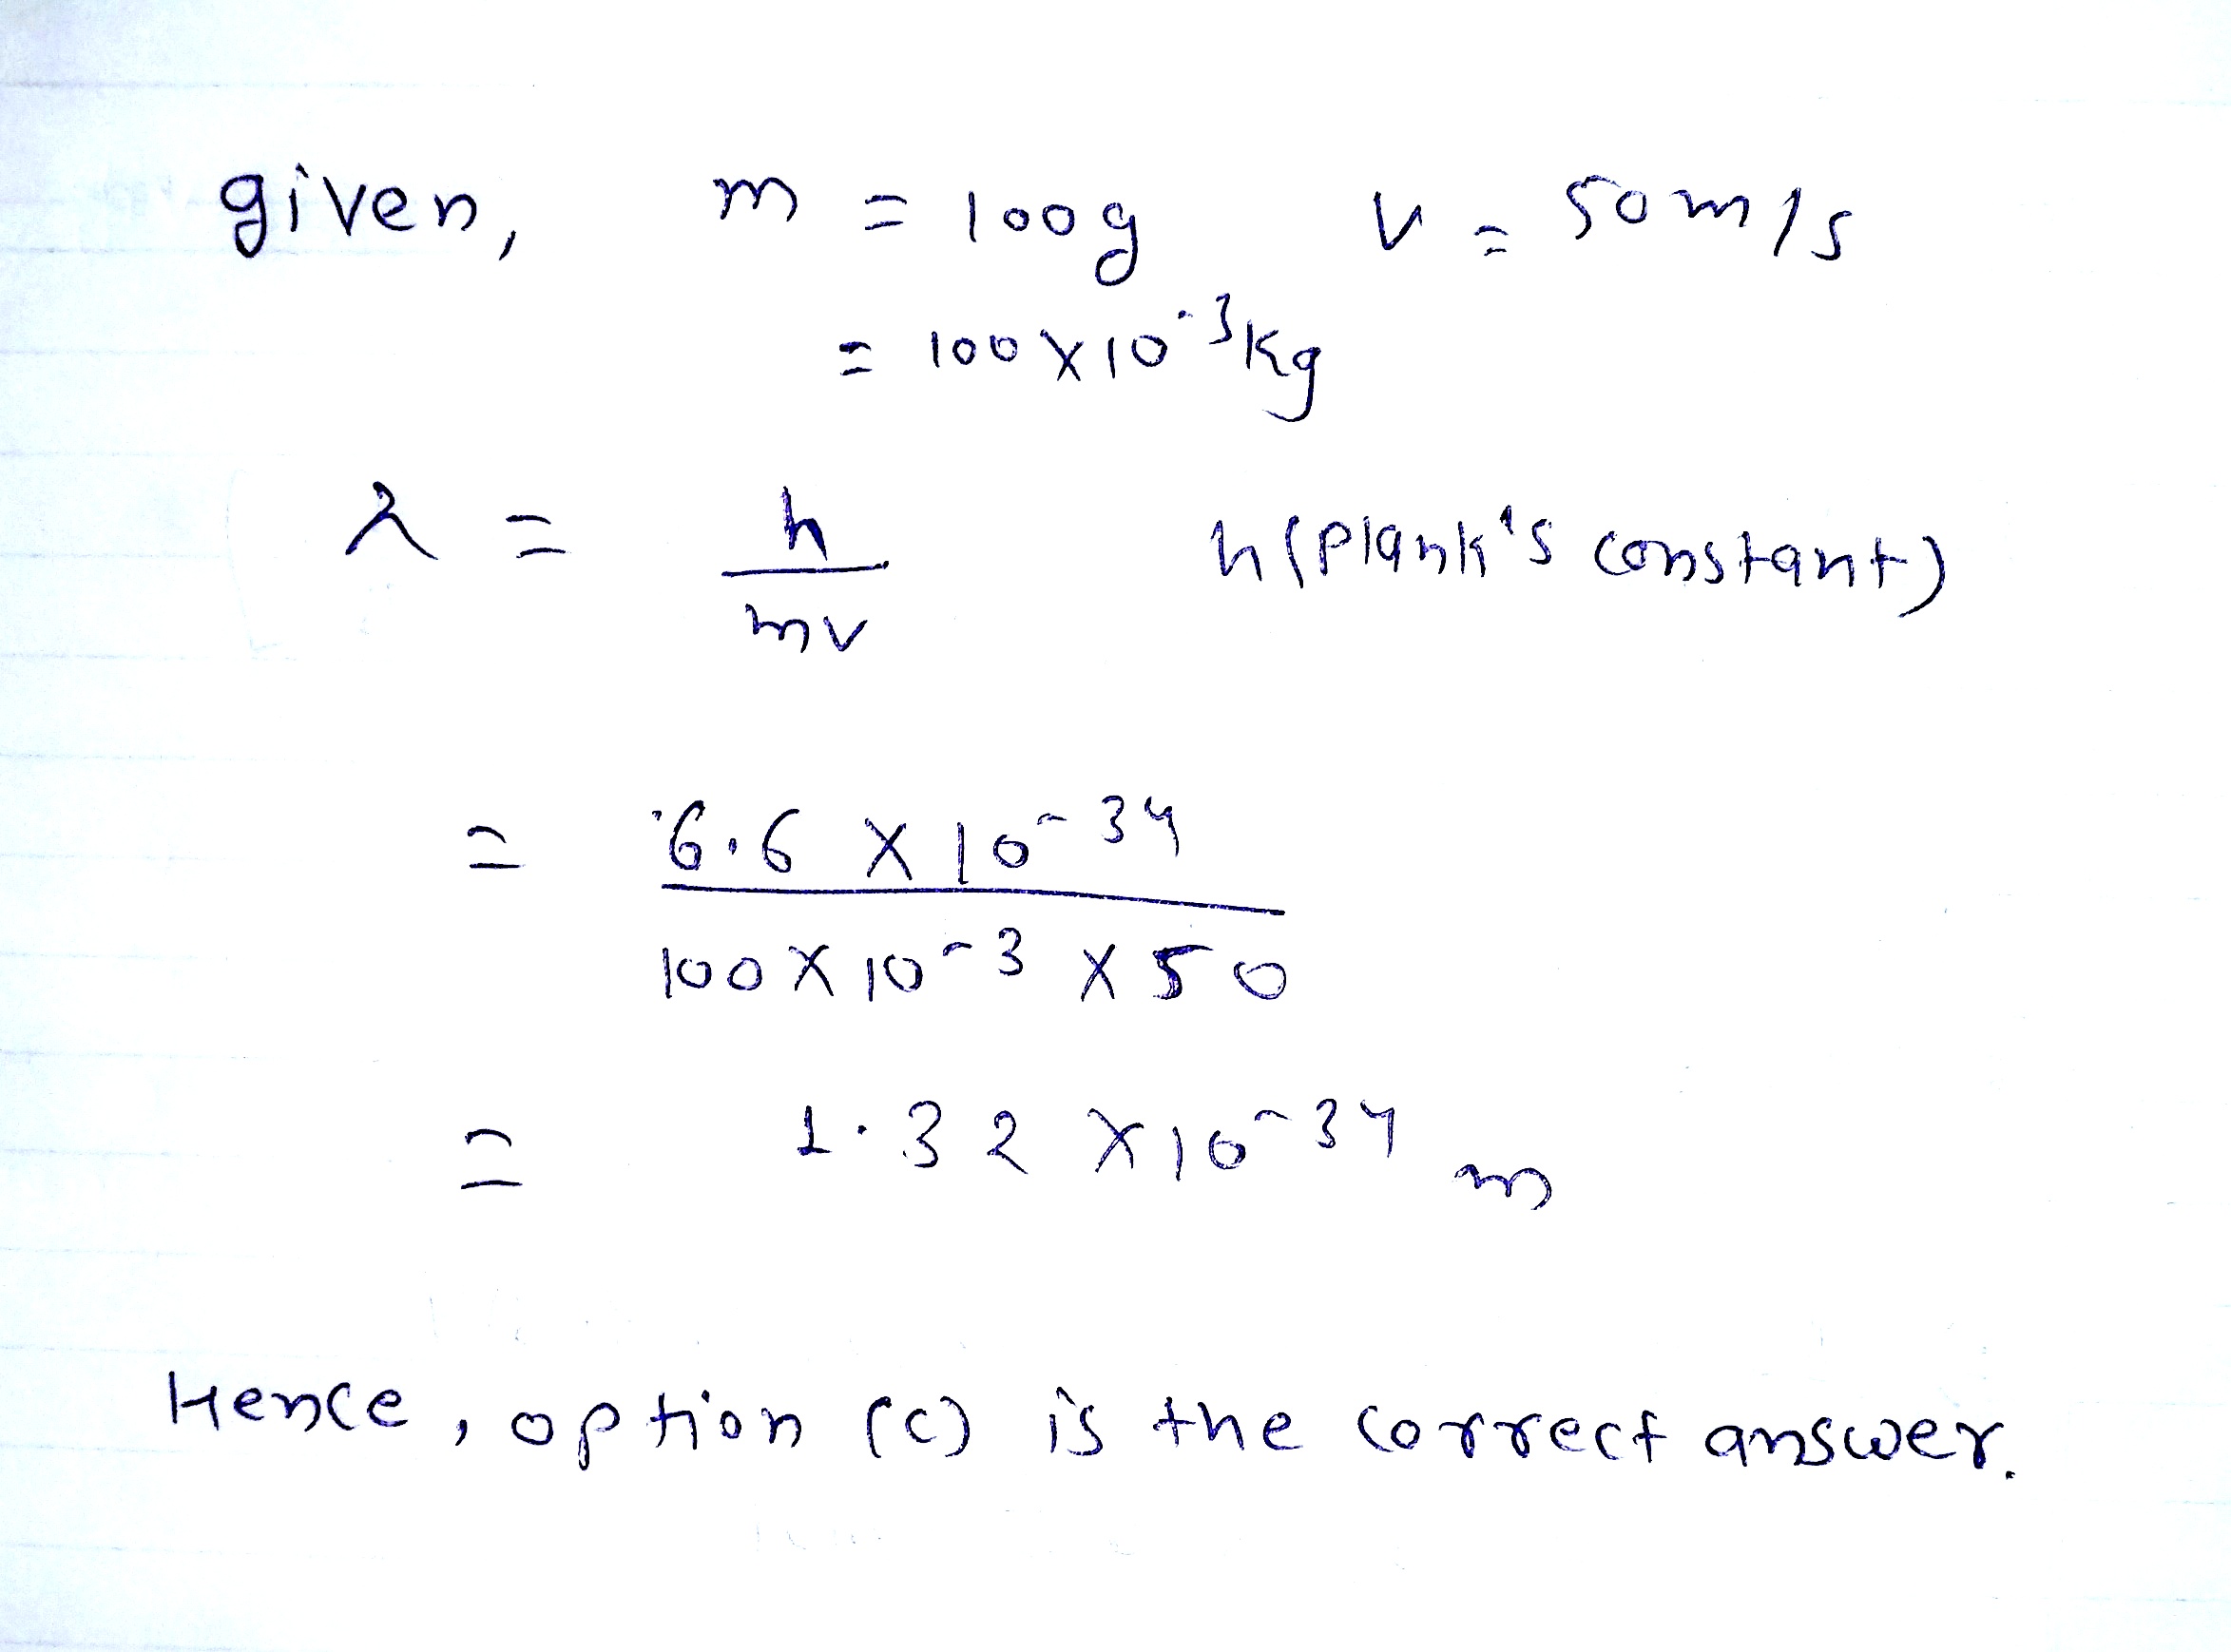 given, m = 100g v = 50m/s
= 100 × 10⁻³ kg
λ = h/mv h (plank's constant)
= 6.6 × 10⁻³⁴ / 100 × 10⁻³ × 50
= 1.32 × 10⁻³⁴ m
Hence, option (c) is the correct answer.